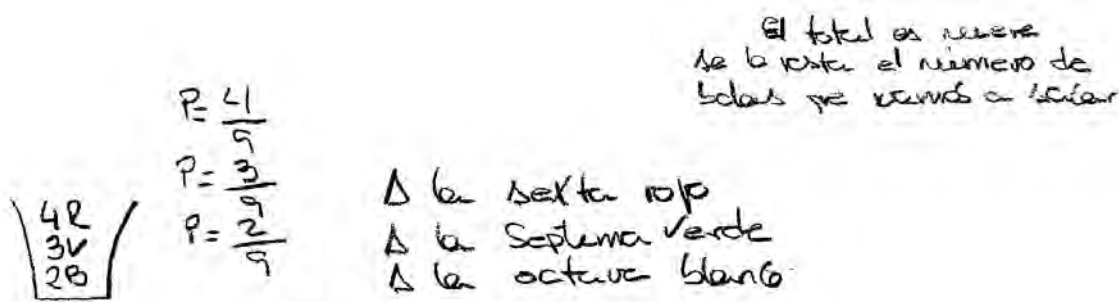 El total es nueve
se le resta el número de
bolas que vamos a sacar
P= 4/9
P= 3/9
P= 2/9
4R
3V
2B
A la sexta rojo
A la Septema verde
A la octava blanco